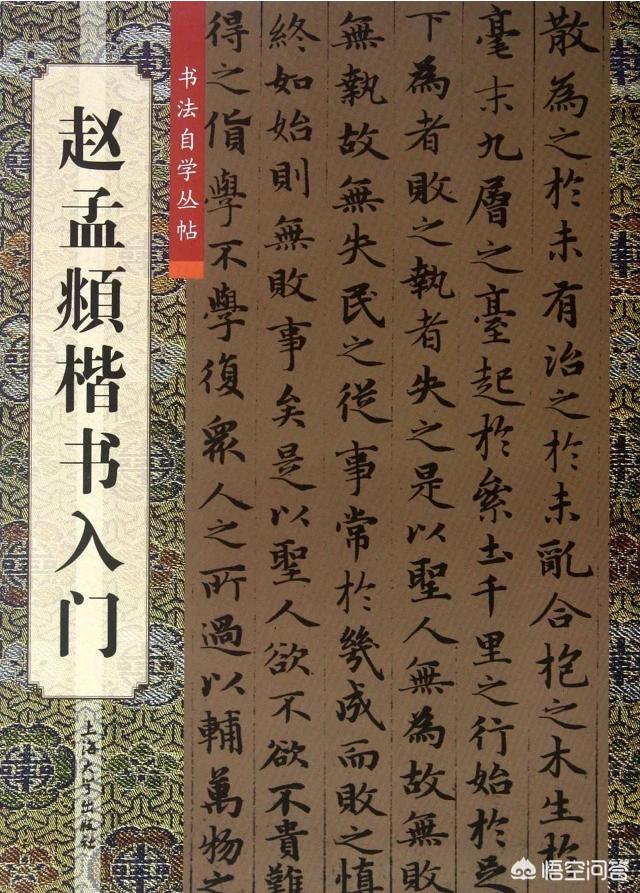 赵孟頫楷书入门
书法自学丛帖
散為之於未有治之於未亂合抱之木生於
毫末九層之臺起於絫土千里之行始於足
下為者敗之執者失之是以聖人無為故無敗
無執故無失民之從事常於幾成而敗之慎
終如始則無敗事矣是以聖人欲不欲不貴難
得之貨學不學復眾人之所過以輔萬物之
上海大学出版社
悟空问答